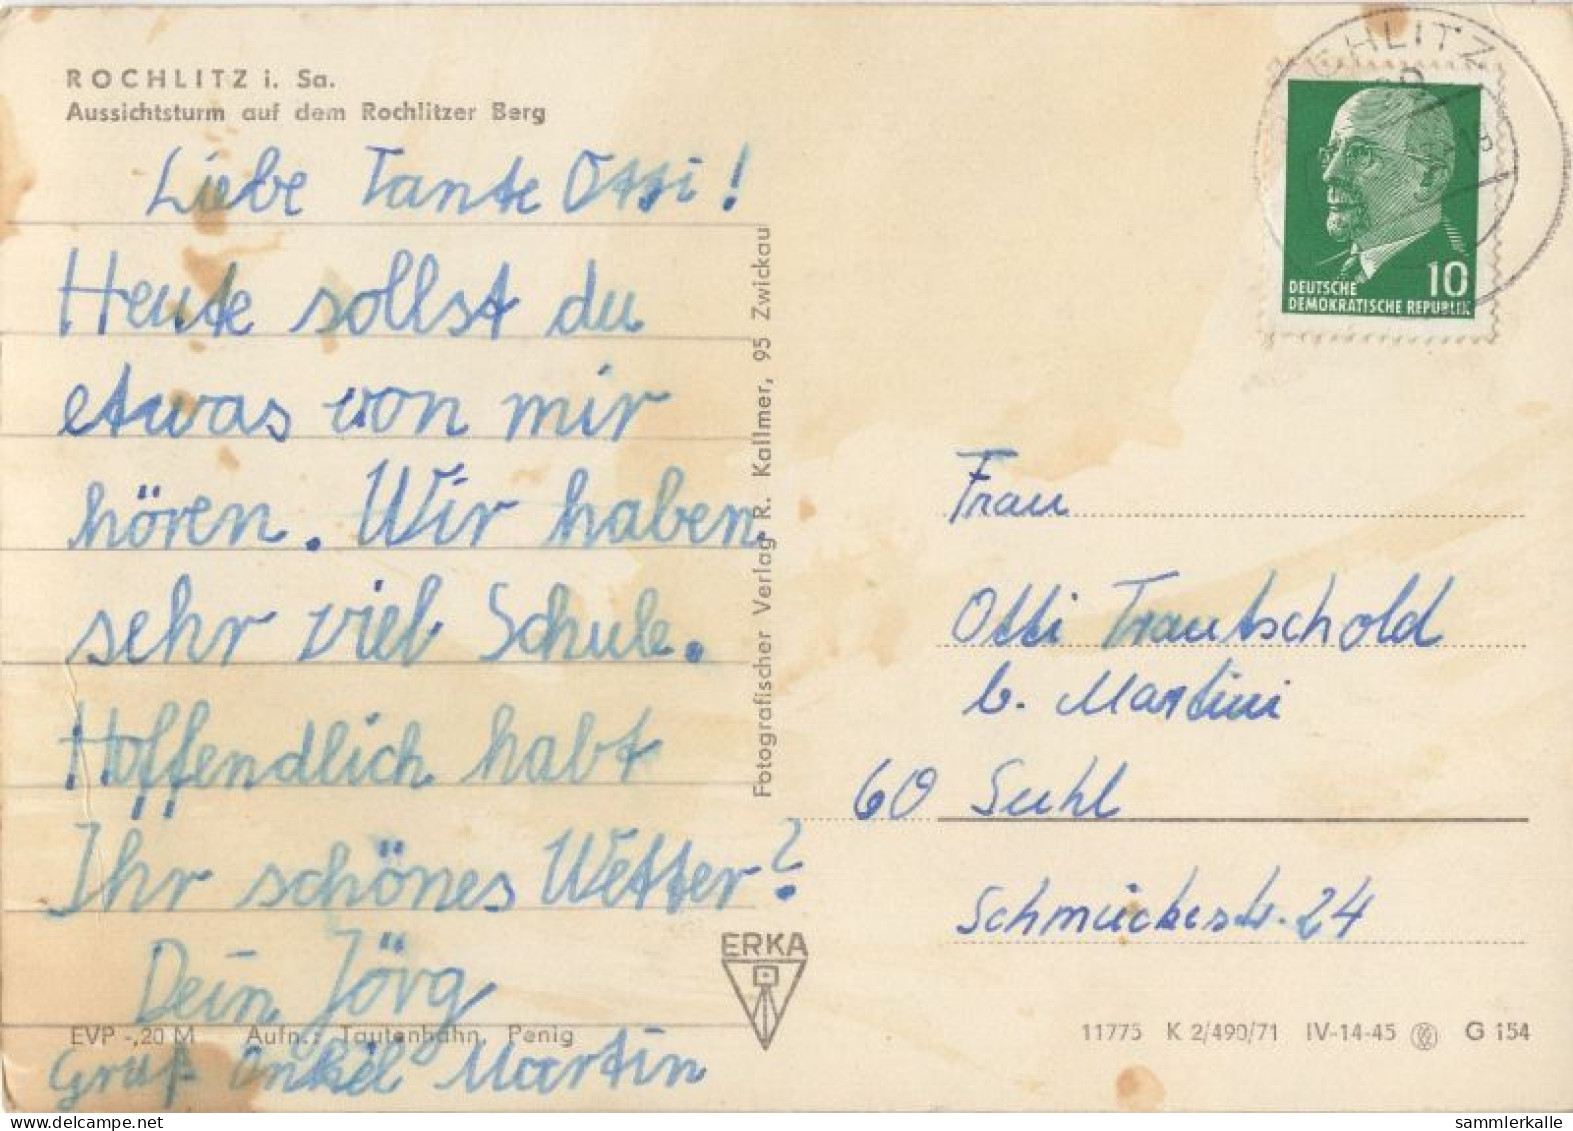 ROCHLITZ i. Sa.
Aussichtsturm auf dem Rochlitzer Berg
Liebe Tante Otti!
Heute sollst du
etwas von mir
hören. Wir haben
sehr viel Schule.
Hoffendlich habt
Ihr schönes Wetter?
Dein Jörg
Gruß Onkel Martin
EVP -,20 M Aufn.: Tautenhahn, Penig
Fotografischer Verlag R. Kallmer, 95 Zwickau
ERKA
ROCHLITZ
DEUTSCHE
DEMOKRATISCHE REPUBLIK
10
Frau
Otti Trautschold
b. Martini
60 Suhl
Schmückestr. 24
11775 K 2/490/71 IV-14-45 G 154
www.sammlerkalle.com